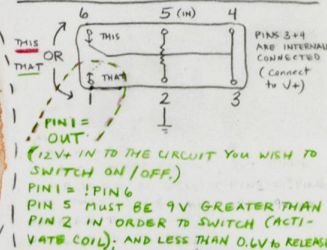 6 5 (IN) 4
THIS
THIS
OR
THAT
THAT
PINS 3+4
ARE INTERNAL
CONNECTED
(Connect
to V+)
1 2 3
PIN 1 =
OUT
(12V+ IN TO THE CIRCUIT YOU WISH TO
SWITCH ON/OFF.)
PIN 1 = !PIN 6
PIN 5 MUST BE 9V GREATER THAN
PIN 2 IN ORDER TO SWITCH (ACTI-
VATE COIL); AND LESS THAN 0.6V to RELEAS